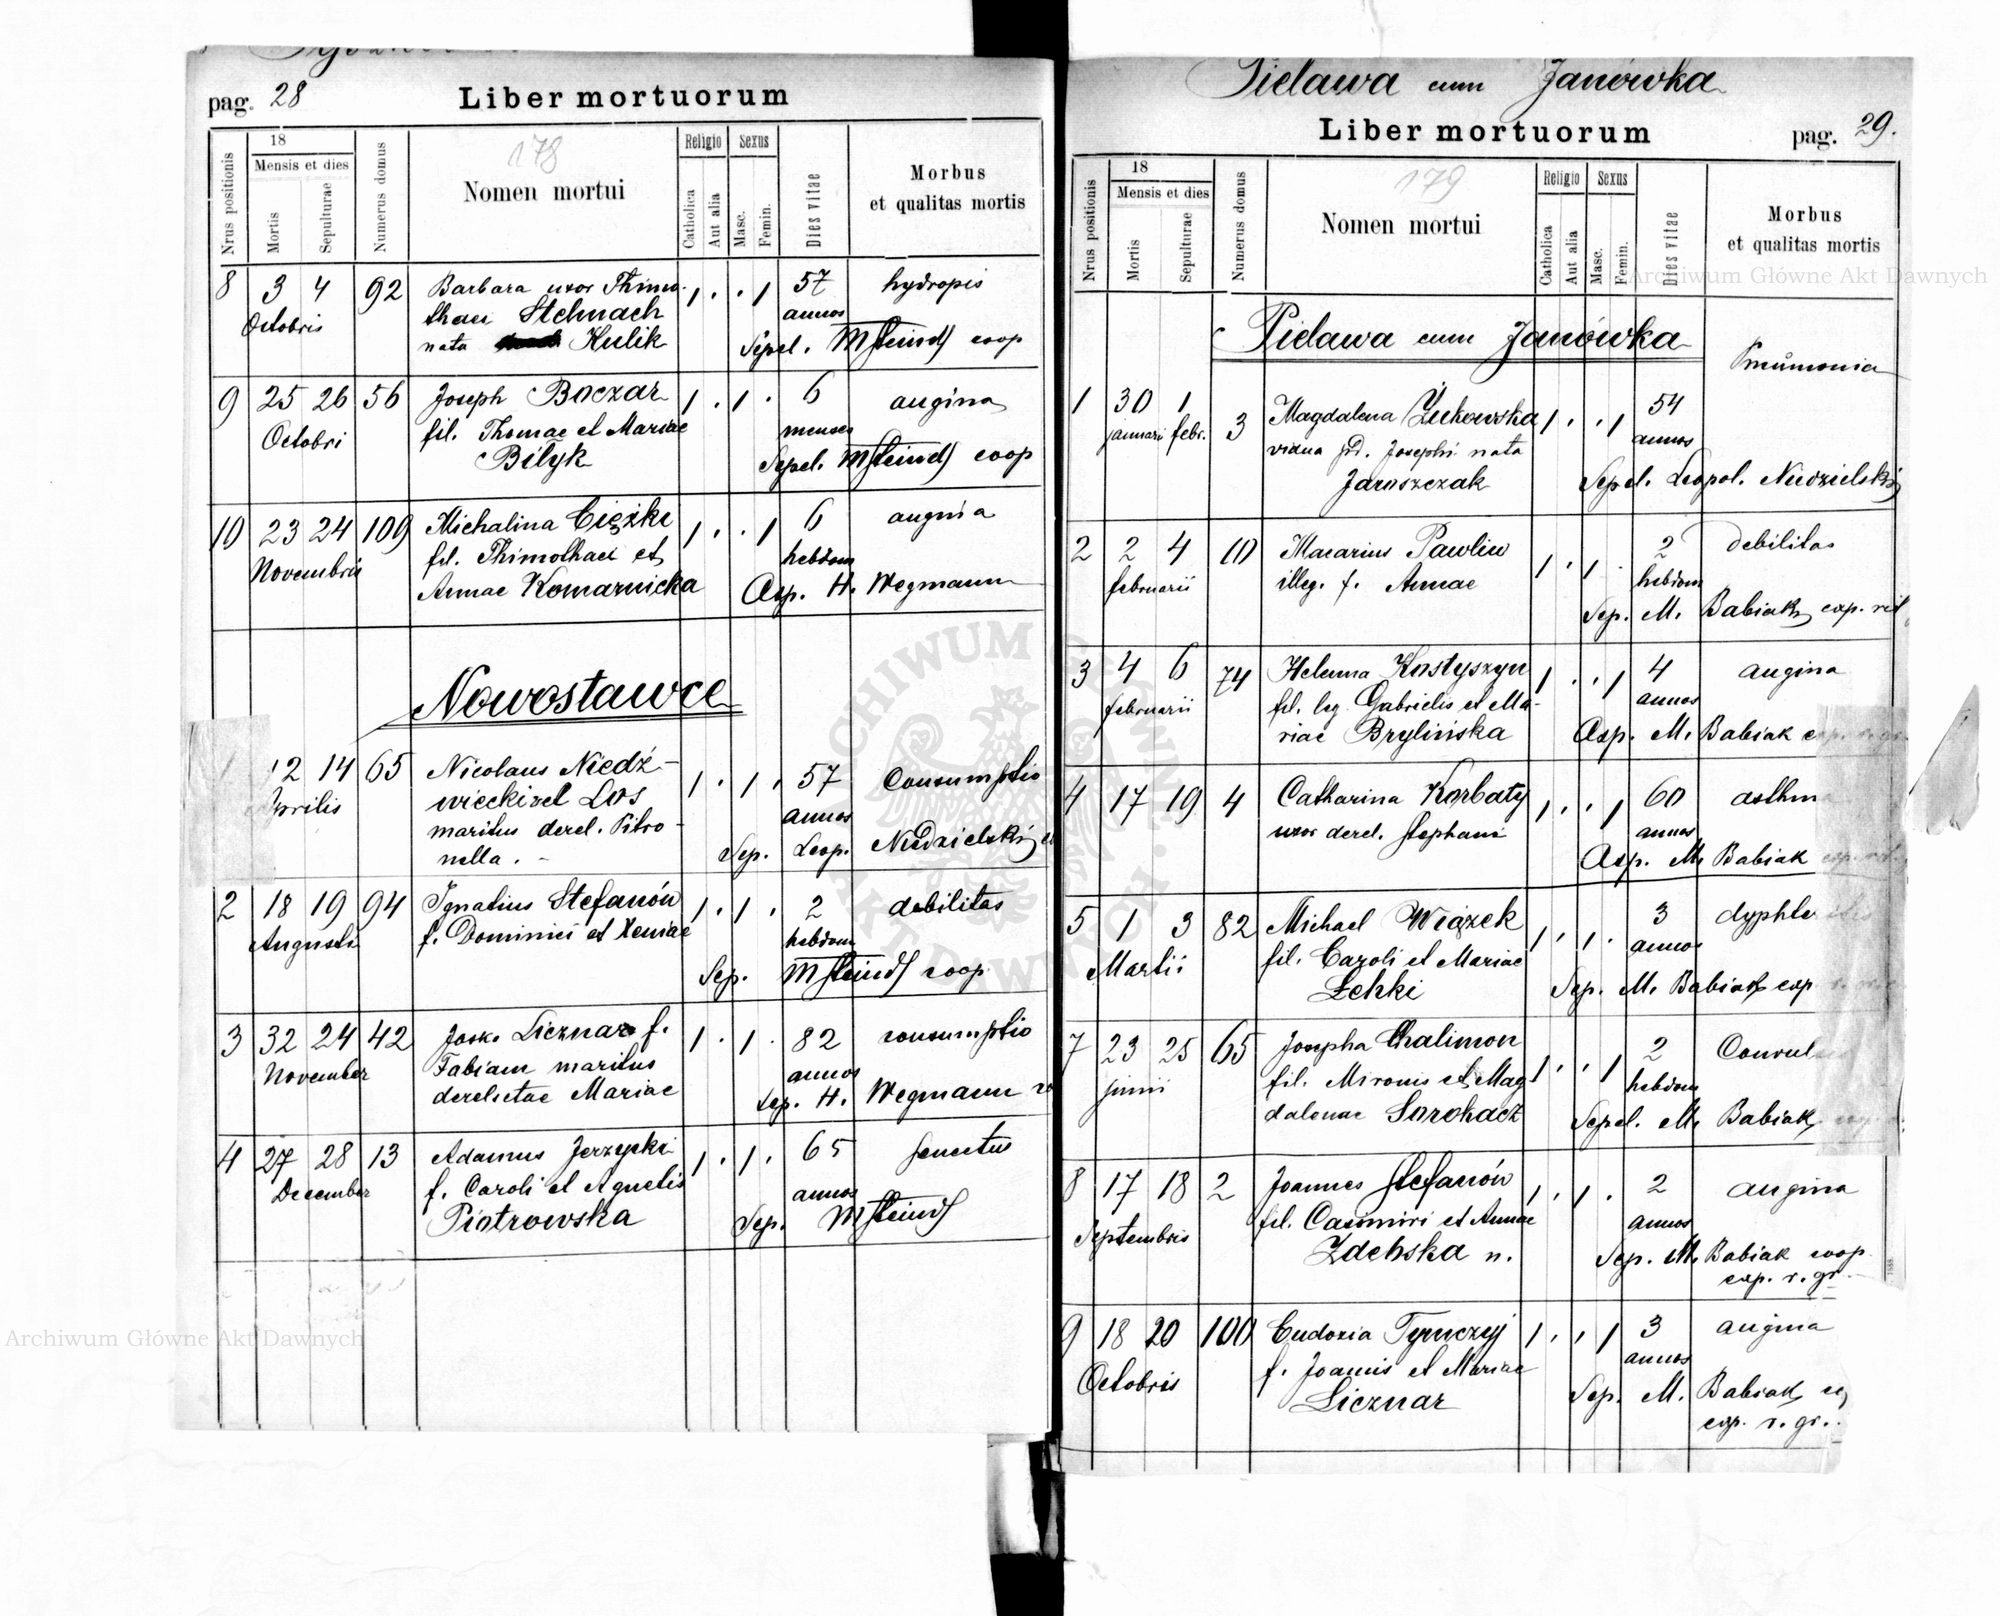 pag. 28
Liber mortuorum
178
Nrus positionis
18
Mensis et dies
Mortis
Sepulturae
Numerus domus
Nomen mortui
Religio
Catholica
Aut alia
Sexus
Masc.
Femin.
Dies vitae
Morbus
et qualitas mortis
8 3 4 92 Barbara uxor Thimo- 1 . . 1 57 hydropis
Octobris thaei Stelmach annos
nata Kulik Sepel. MSteindl coop
9 25 26 56 Joseph Boczar 1 . 1 . 6 angina
Octobri fil. Thomae et Mariae menses
Bilyk Sepel. MSteindl coop
10 23 24 109 Michalina Ciężki 1 . . 1 6 angina
Novembris fil. Thimothaei et hebdom
Annae Komarnicka Asp. H. Wegmann
Nowostawce
12 14 65 Nicolaus Niedź- 1 . 1 . 57 Consumptio
Aprilis wiecki vel Los annos
maritus derel. Pitro- Sep. Leop. Niedzielski
nella . -
2 18 19 94 Ignatius Stefanów 1 . 1 . 2 debilitas
Augusti f. Dominici et Xeniae hebdom
Sep. MSteindl coop
3 32 24 42 Josk. Licznar f. 1 . 1 . 82 consumptio
November Fabiam maritus annos
derelictae Mariae Sep. H. Wegmann
4 27 28 13 Adamus Jerzycki 1 . 1 . 65 senectus
December f. Caroli et Agnetis annos
Piotrowska Sep. MSteindl
Pielawa cum Janówka
Liber mortuorum
pag. 29.
179
Nrus positionis
18
Mensis et dies
Mortis
Sepulturae
Numerus domus
Nomen mortui
Religio
Catholica
Aut alia
Sexus
Masc.
Femin.
Dies vitae
Morbus
et qualitas mortis
Pielawa cum Janówka
Pneumonia
1 30 1 3 Magdalena Żukowska 1 . . 1 54
januarii febr. vidua pd. Josephi nata annos
Jaroszczak Sepel. Leopol. Niedzielski
2 2 4 10 Macarius Pawliw 1 . 1 . 2 debilitas
februarii illeg. f. Annae hebdom
Sep. M. Babiak exp. rit
3 4 6 74 Helena Kostyszyn 1 . . 1 4 angina
februarii fil. leg. Gabrielis et Ma- annos
riae Brylińska Asp. M. Babiak
4 17 19 4 Catharina Korbaty 1 . . 1 60 asthm
uxor derel. Stephani annos
Asp. M. Babiak
5 1 3 82 Michael Wiązek 1 . 1 . 3 dyphter
Martii fil. Caroli et Mariae annos
Lehki Sep. M. Babiak exp
7 23 25 65 Josepha Chalimon 1 . . 1 2 Convul
junii fil. Mironis et Mag hebdom
dalenae Sorohacz Sepel. M. Babiak
8 17 18 2 Joannes Stefanów 1 . 1 . 2 angina
Septembris fil. Casimiri et Annae annos
Zdebska n. Sep. M. Babiak coop
exp. r. gr.
9 18 20 100 Eudoxia Tymczyj 1 . . 1 3 angina
Octobris f. Joannis et Mariae annos
Licznar Sep. M. Babiak
exp. r. gr.
Archiwum Główne Akt Dawnych
Archiwum Główne Akt Dawnych
ARCHIWUM GŁÓWNE AKT DAWNYCH